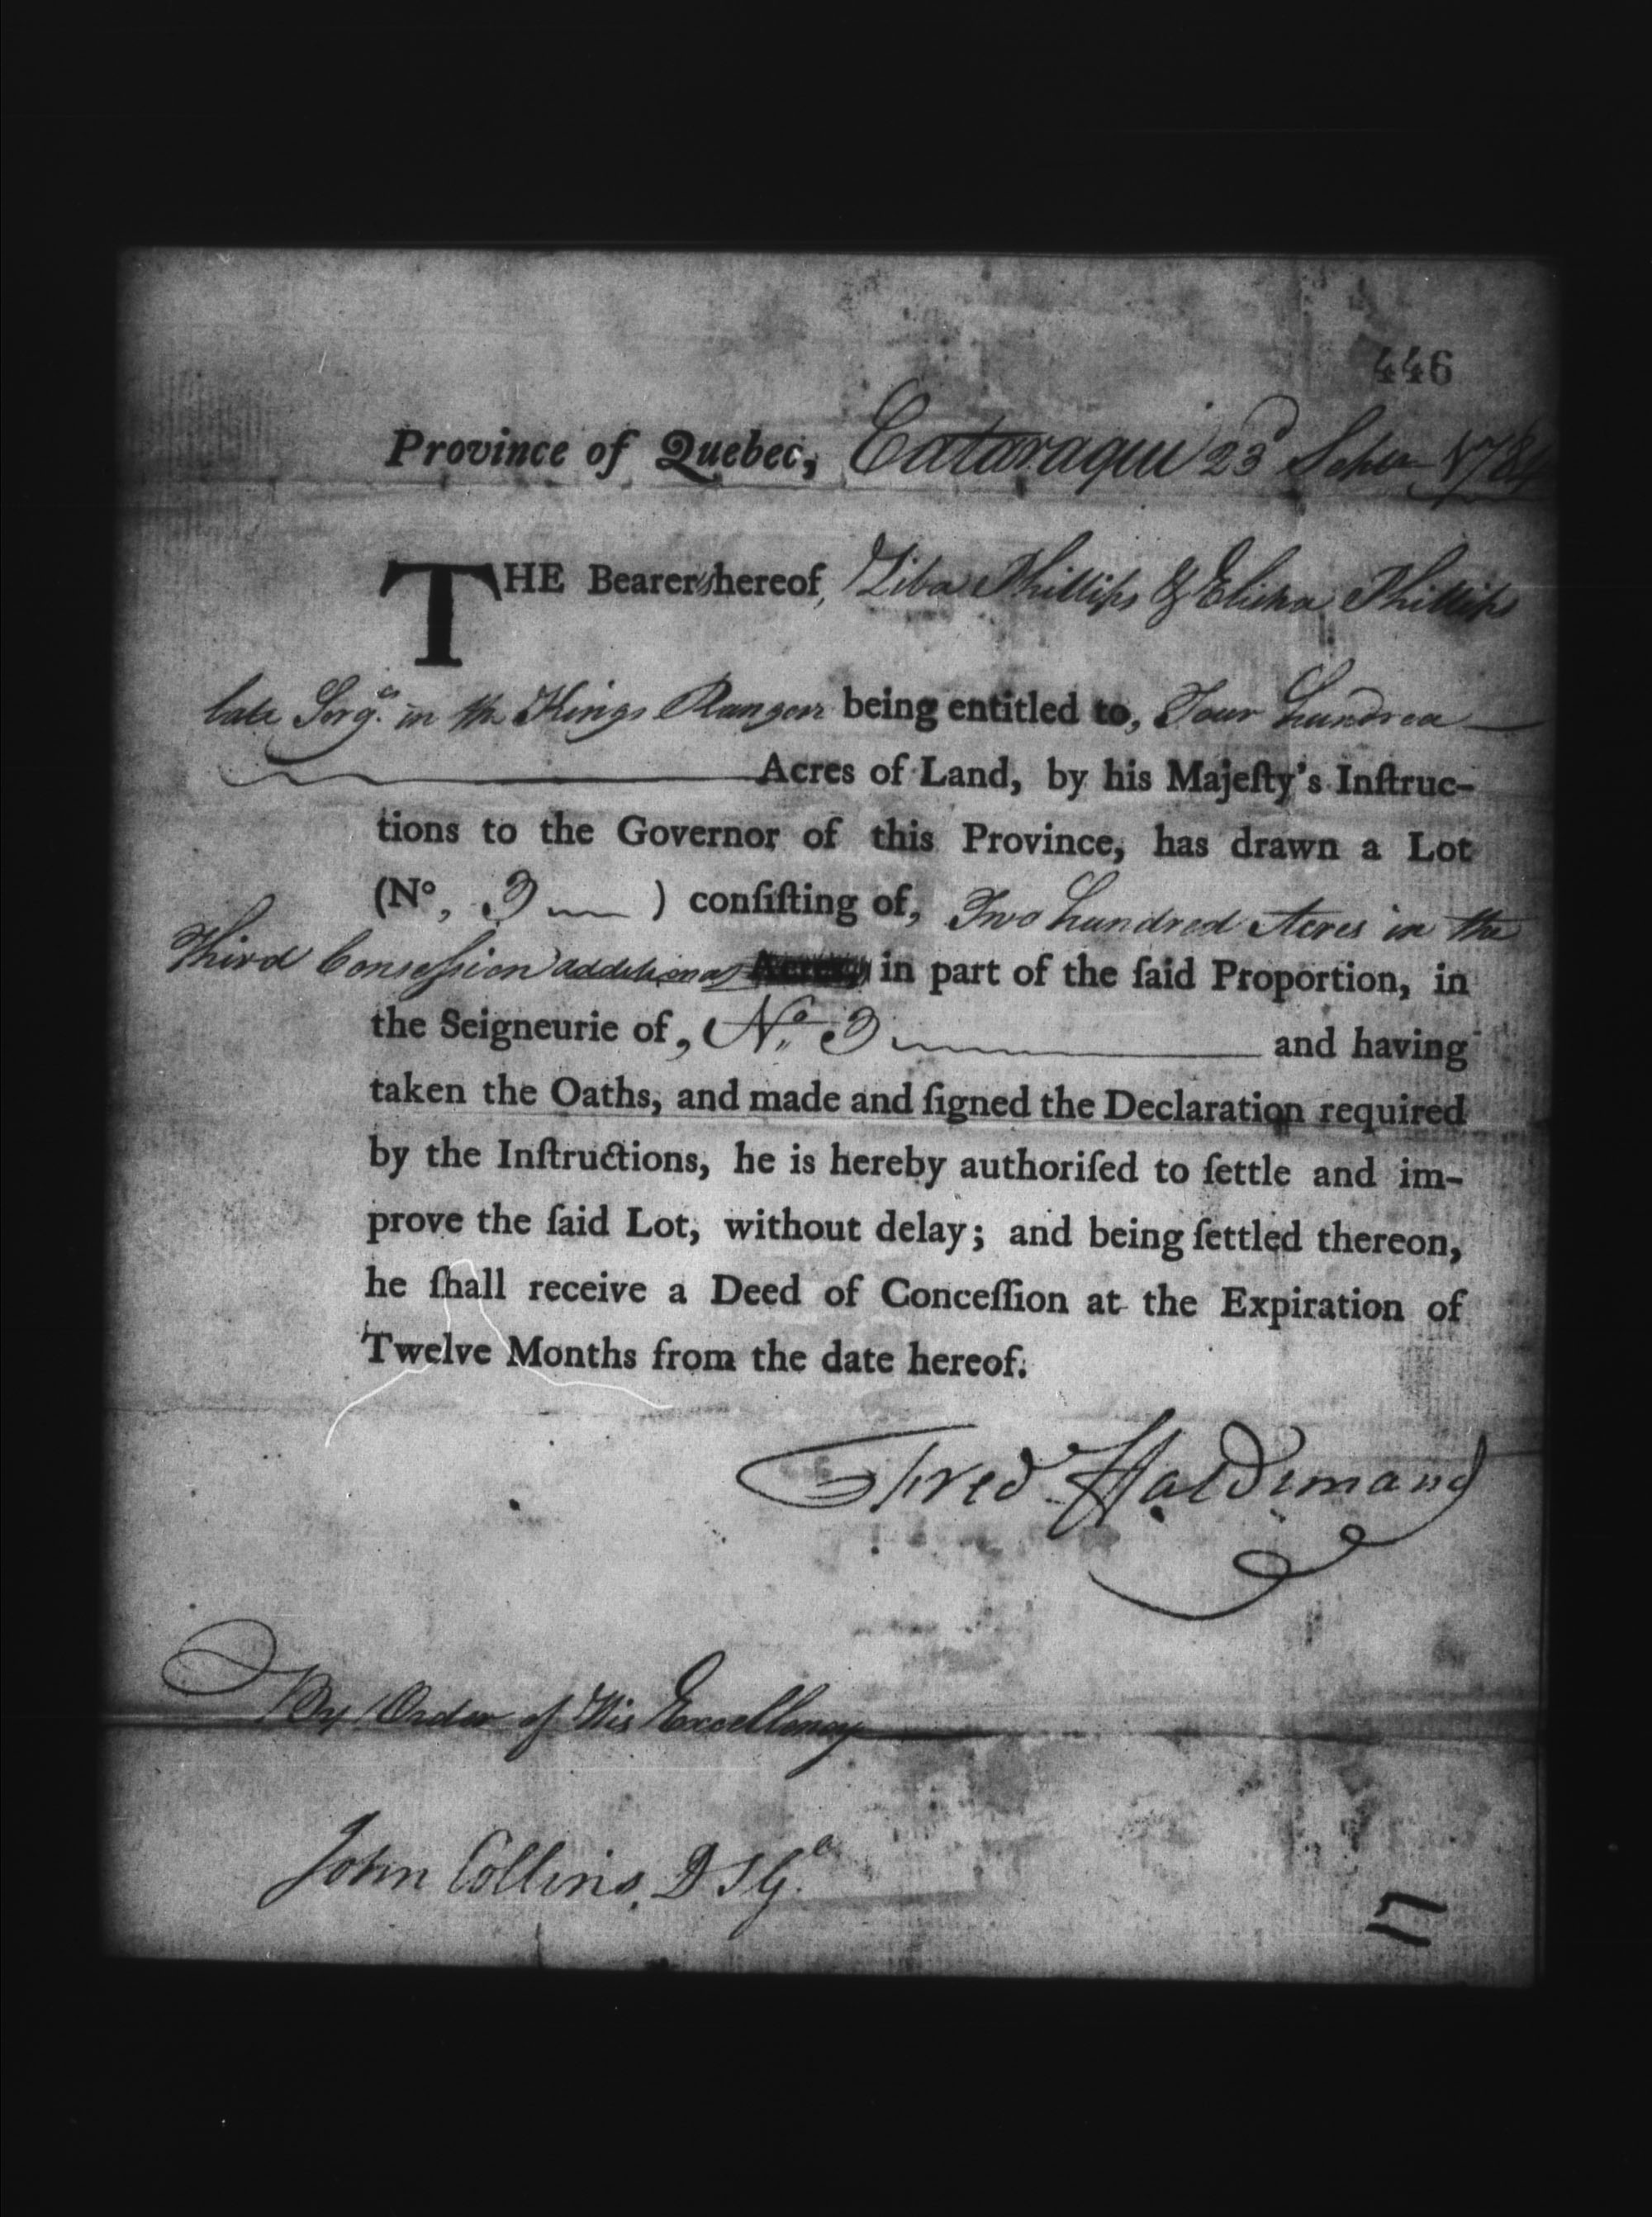 446
Province of Quebec, Cataraqui 23d Septr. 1784
THE Bearers hereof, Ziba Phillips & Elisha Phillips
late Serg.ts in the Kings Rangers being entitled to, Four hundred
Acres of Land, by his Majeſty's Inſtruc-
tions to the Governor of this Province, has drawn a Lot
(N°, 3) conſiſting of, Two hundred Acres in the
Third Concession additional Acres, in part of the ſaid Proportion, in
the Seigneurie of, No. 3 and having
taken the Oaths, and made and ſigned the Declaration required
by the Inſtructions, he is hereby authoriſed to ſettle and im-
prove the ſaid Lot, without delay; and being ſettled thereon,
he ſhall receive a Deed of Conceſſion at the Expiration of
Twelve Months from the date hereof.
Fred Haldimand
By Order of His Excellency
John Collins, D S G